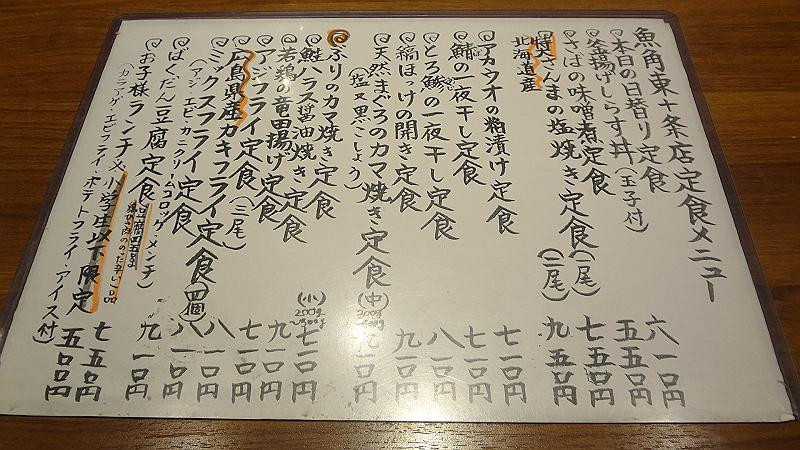 魚角東十条店定食メニュー
本日の日替り定食 六一〇円
釜揚げしらす丼(玉子付) 五五〇円
さばの味噌煮定食(一尾) 七五〇円
北海道産
特大さんまの塩焼き定食(一尾) 九五〇円
アカウオの粕漬け定食 七一〇円
鯖の一夜干し定食 七一〇円
とろ鯵の一夜干し定食 八一〇円
縞ほっけの開き定食 九一〇円
天然まぐろのカマ焼き定食(中) 九一〇円
(塩又黒こしょう)
300g
ぶりのカマ焼き定食(小) 七一〇円
200g~300g
鮭ハラス醤油焼き定食 九一〇円
若鶏の竜田揚げ定食 七一〇円
アジフライ定食(二尾) 八一〇円
広島県産カキフライ定食(四個) 八一〇円
ミックスフライ定食 九一〇円
(アジ・エビ・カニクリームコロッケ・メンチ)
ばくだん豆腐定食 七五〇円
お子様ランチ※小学生以下限定 五五〇円
(カラアゲ・エビフライ・ポテトフライ・アイス付)